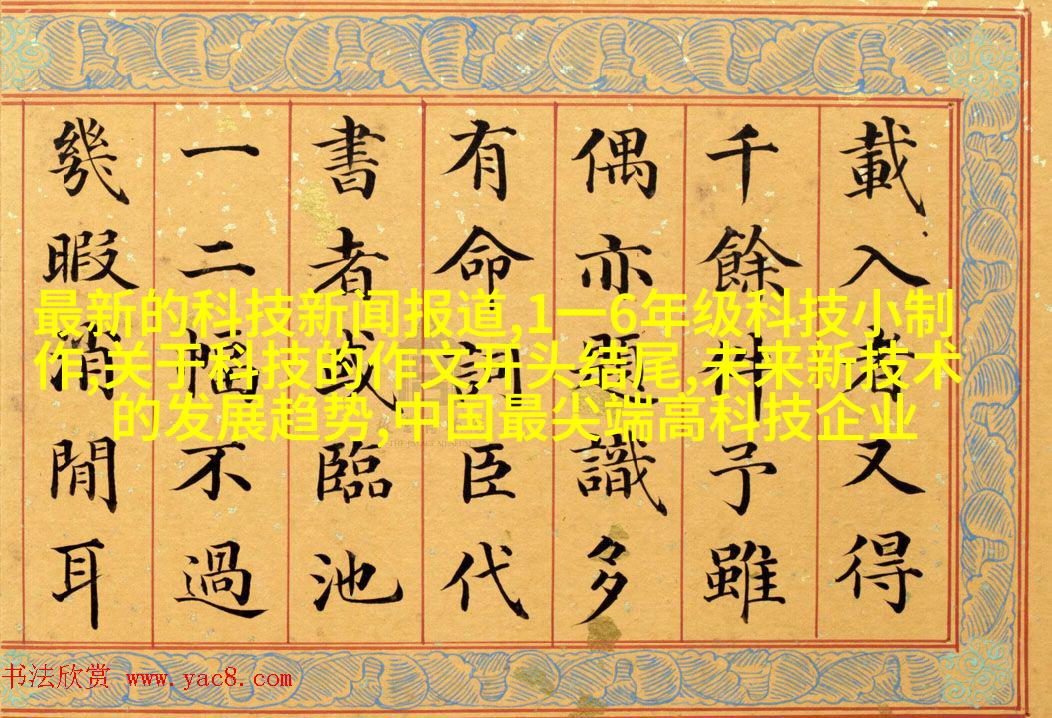 載入者又得
千餘件予雖
偶亦題識多
有命詞臣代
書者或臨池
一二幅不過
幾暇消閒耳
最新的科技新闻报道,1一6年级科技小制
作,关于科技的作文开头结尾,未来新技术
的发展趋势,中国最尖端高科技企业
THE PALACE MUSEUM
书法欣赏 www.yac8.com